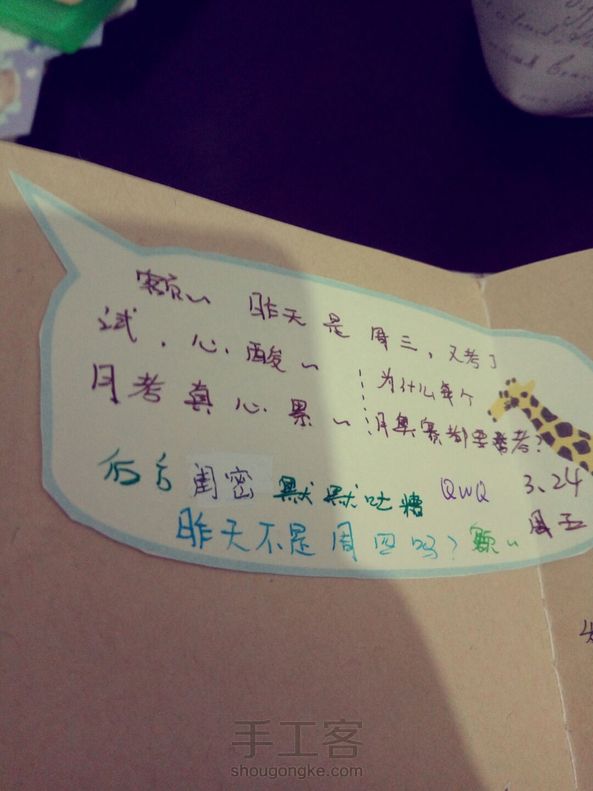 额~ 昨天是周三,又考了
试,心酸~
月考真心累~
为什么每个
月奥赛都要考?
后方闺密默默吐槽 QWQ 3.24
周五
昨天不是周四吗?额~
手工客
shougongke.com